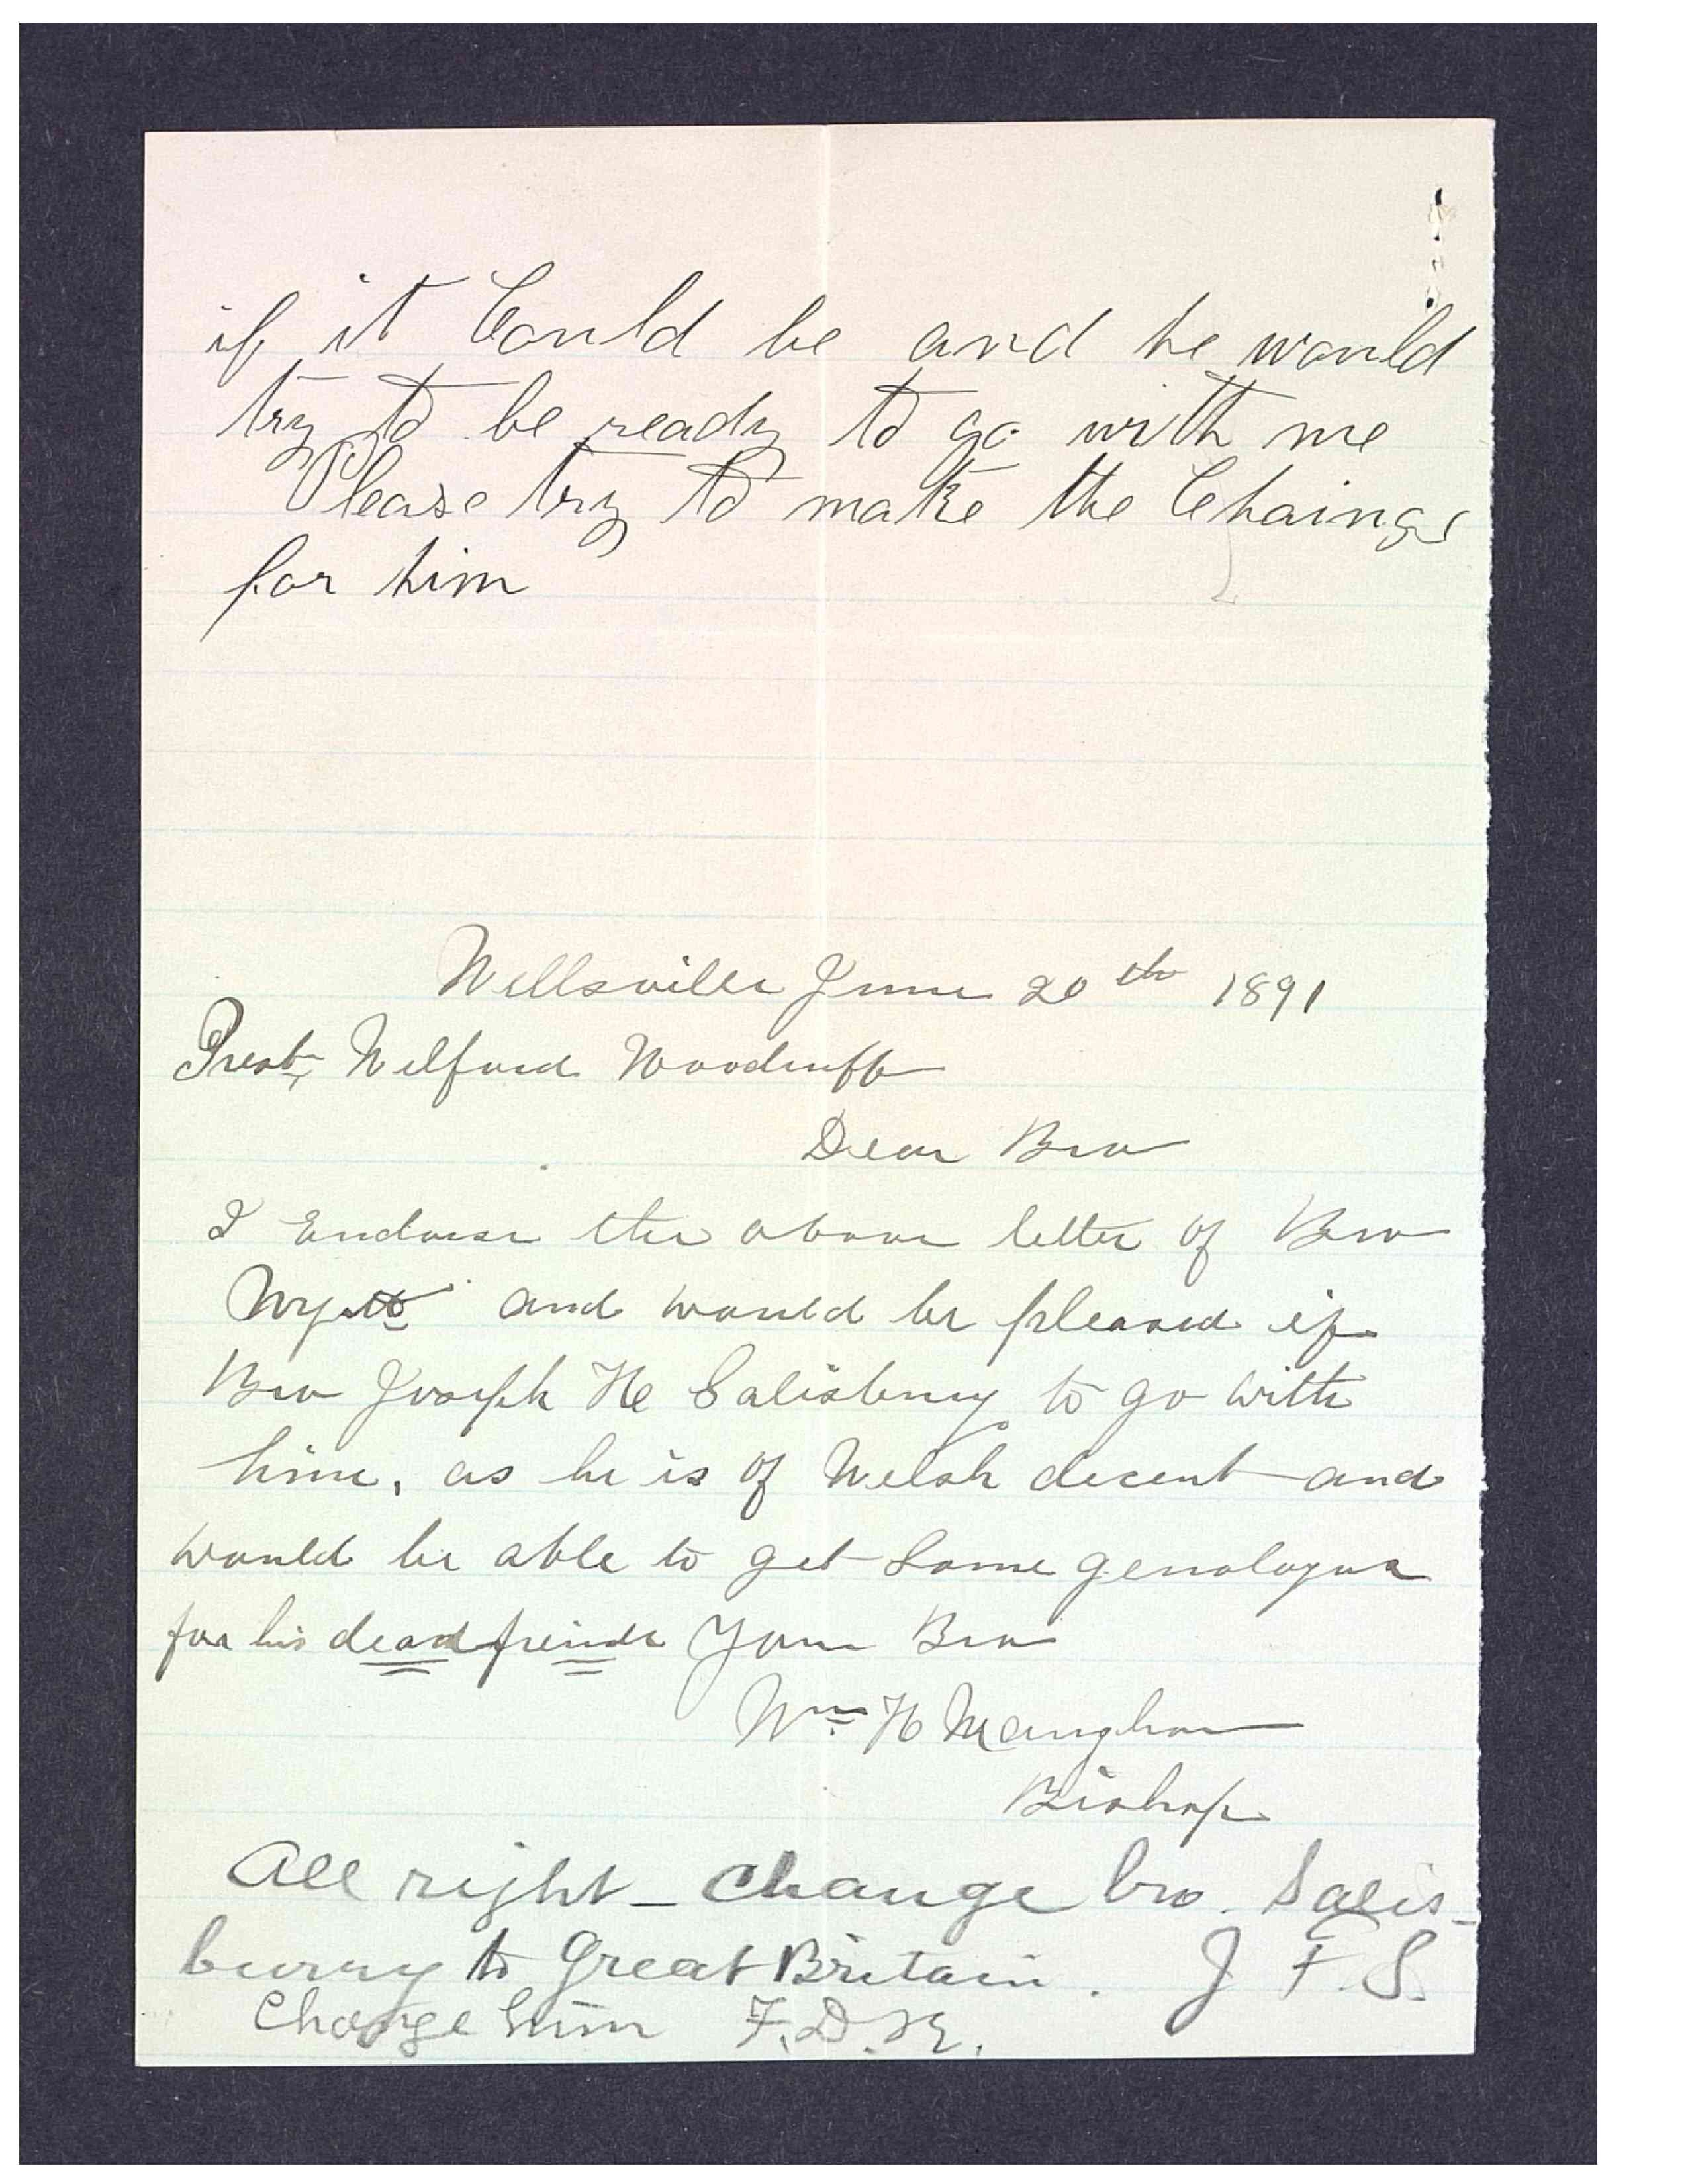 if it Could be and he would
try to be ready to go with me
Please try to make the Chainge
for him
Wellsville June 20th 1891
Prest, Wilford Woodruff
Dear Bro
I Endorse the above letter of Bro
Wyatt and would be pleased if
Bro Joseph H Salisbury to go with
him, as he is of Welsh decent and
would be able to get some
for his dead freinds Your Bro
Wm. H Maughan
Bishop
All right - Change bro. Salis-
burry to Great Britain. J F. S.
Change him F. D. R.